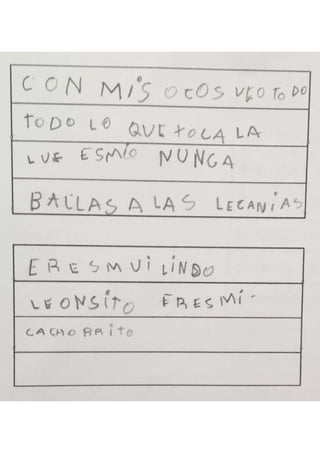 CON MiS OCOS VEO TODO
TODO LO QUE tOCA LA
LUE ESMíO NUNCA
BALLAS A LAS LECANIAS
ERESMUi LiNDO
LEONSiTO ERESMi
CACHORRiTO